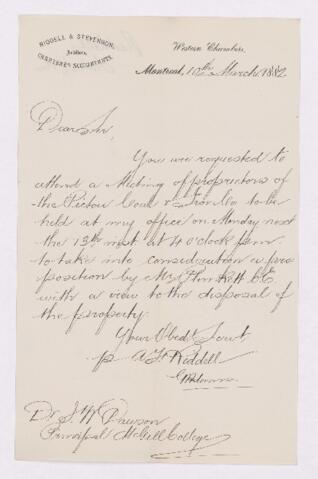 RIDDELL & STEVENSON,
Auditors,
CHARTERED ACCOUNTANTS.
Western Chambers,
Montreal, 10th March 1882
Dear Sir
You are requested to
attend a Meeting of proprietors of
the Pictou Coal & Iron Co to be
held at my office on Monday next
the 13th inst. at 4 o'clock p.m.
to take into consideration a pro
position by Mr
with a view to the disposal of
the property.
Your Obedt Servt,
p A F Riddell
Dr J. W Dawson
Principal McGill College